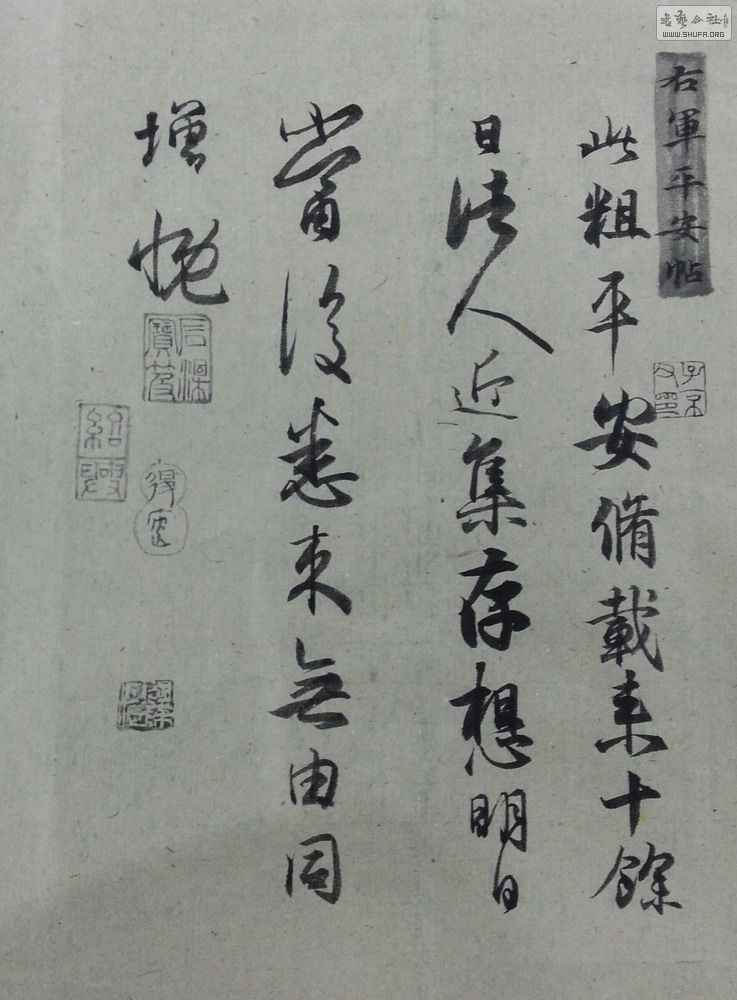 右軍平安帖
此粗平安脩載來十餘
日諸人近集存想明日
當復悉來無由同
增慨
紹興
書藝公社
WWW.SHUFA.ORG